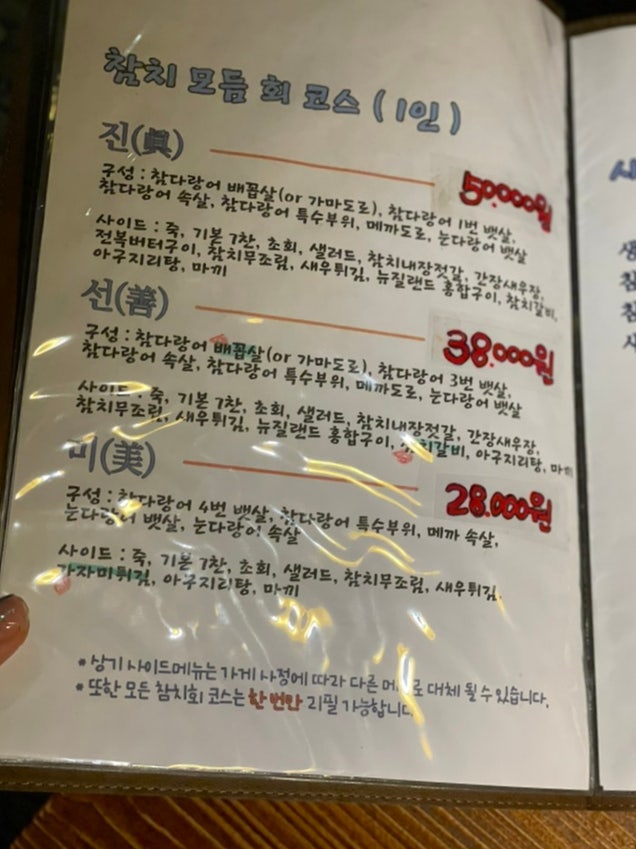 참치 모듬 회 코스 (1인)
진(眞)
50.000원
구성 : 참다랑어 배꼽살(or 가마도로), 참다랑어 1번 뱃살,
참다랑어 속살, 참다랑어 특수부위, 메까도로, 눈다랑어 뱃살
사이드 : 죽, 기본 7찬, 초회, 샐러드, 참치내장젓갈, 간장새우장,
전복버터구이, 참치무조림, 새우튀김, 뉴질랜드 홍합구이, 참치갈비,
아구지리탕, 마끼
선(善)
38.000원
구성 : 참다랑어 배꼽살(or 가마도로), 참다랑어 3번 뱃살,
참다랑어 속살, 참다랑어 특수부위, 메까도로, 눈다랑어 뱃살
사이드 : 죽, 기본 7찬, 초회, 샐러드, 참치내장젓갈, 간장새우장,
참치무조림, 새우튀김, 뉴질랜드 홍합구이, 참치갈비, 아구지리탕, 마끼
미(美)
28.000원
구성 : 참다랑어 4번 뱃살, 참다랑어 특수부위, 메까 속살,
눈다랑어 뱃살, 눈다랑어 속살
사이드 : 죽, 기본 7찬, 초회, 샐러드, 참치무조림, 새우튀김,
가자미튀김, 아구지리탕, 마끼
* 상기 사이드메뉴는 가게 사정에 따라 다른 메뉴로 대체 될 수 있습니다.
* 또한 모든 참치회 코스는 한 번만 리필 가능합니다.